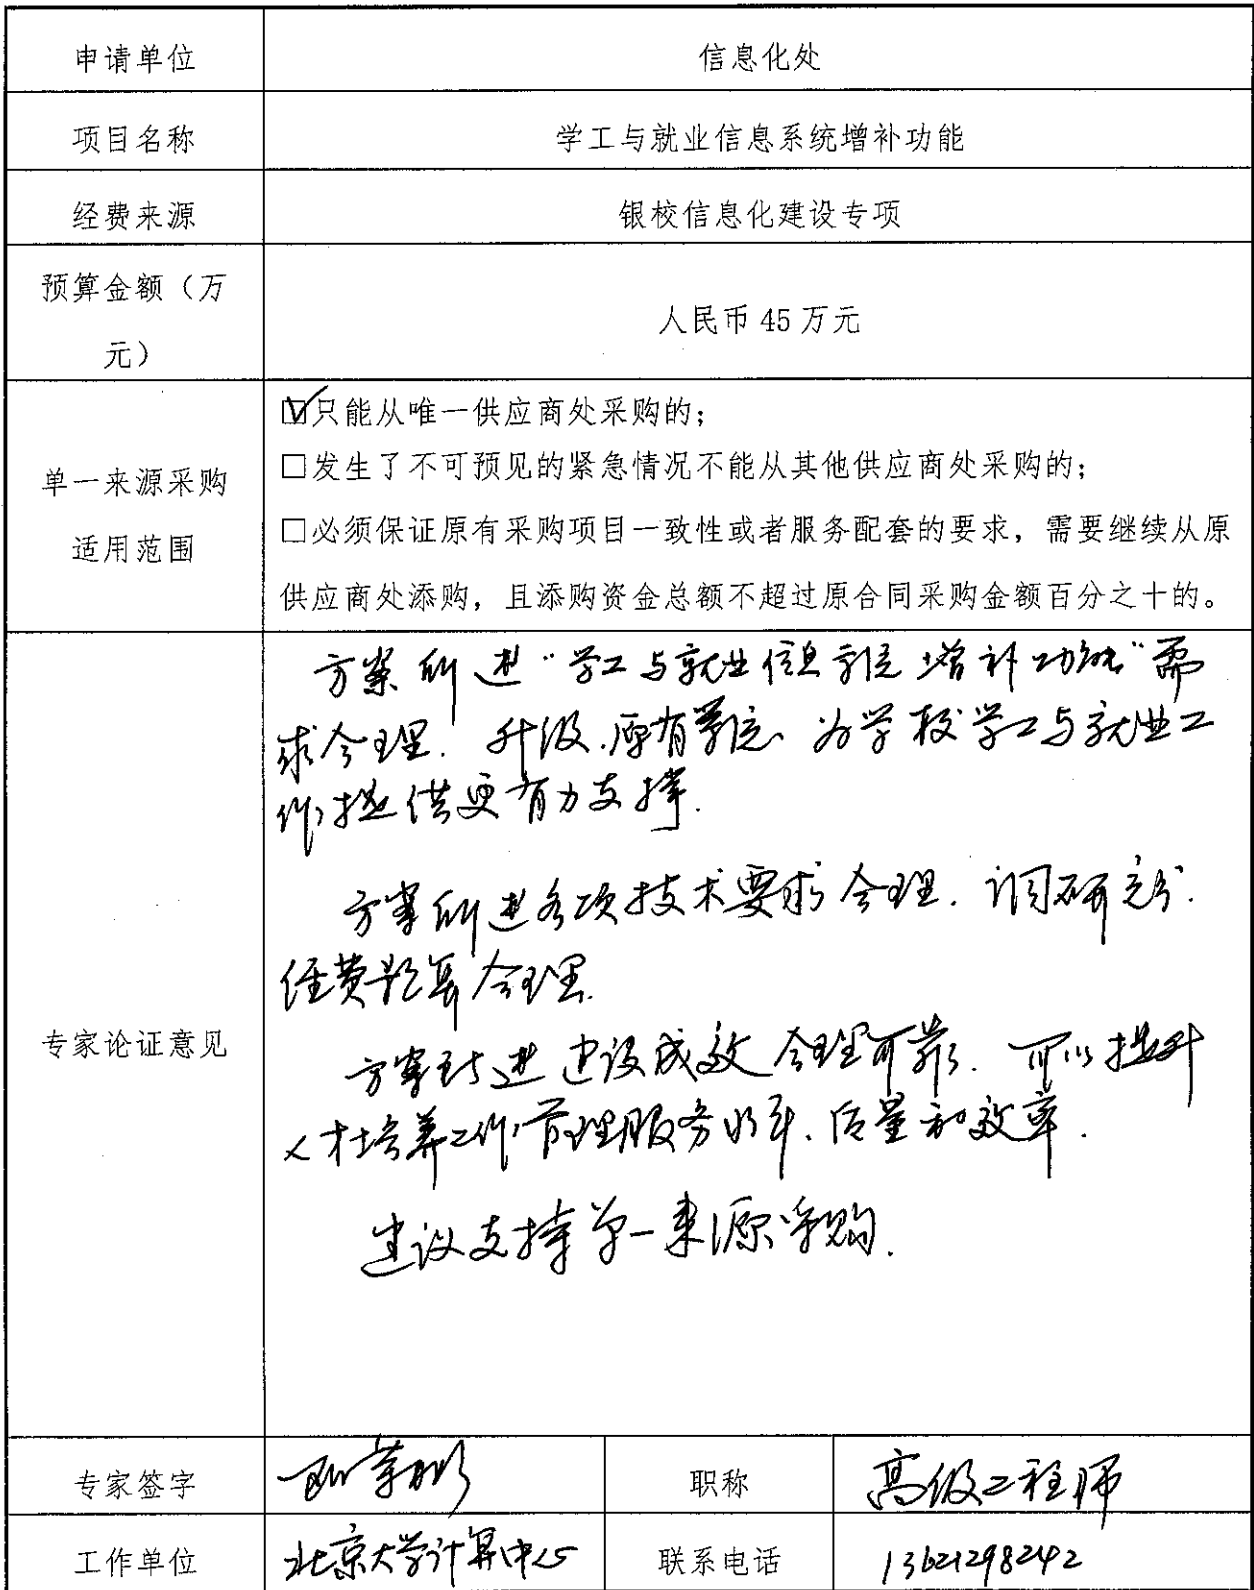 申请单位 信息化处
项目名称 学工与就业信息系统增补功能
经费来源 银校信息化建设专项
预算金额（万
元） 人民币 45 万元
单一来源采购
适用范围
☑只能从唯一供应商处采购的；
□发生了不可预见的紧急情况不能从其他供应商处采购的；
□必须保证原有采购项目一致性或者服务配套的要求，需要继续从原
供应商处添购，且添购资金总额不超过原合同采购金额百分之十的。
专家论证意见
方案所述“学工与就业信息系统增补功能”需
求合理．升级原有系统、为学校学工与就业工
作提供更有力支撑．
方案所述各项技术要求合理．调研充分．
经费预算合理．
方案所述建设成效合理可靠．可以提升
人才培养工作管理服务水平、质量和效率．
建议支持单一来源采购．
专家签字 职称 高级工程师
工作单位 北京大学计算中心 联系电话 13621298242